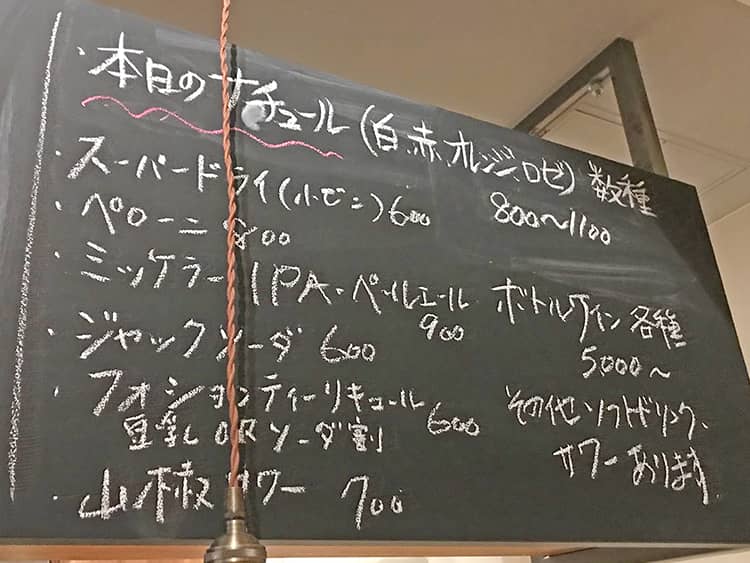 ・本日のナチュール(白・赤・オレンジ・ロゼ)数種
800〜1100
・スーパードライ(小ビン)600
・ペローニ 800
・ミッケラー IPA・ペールエール
900
・ジャックソーダ 600
・フォションティーリキュール
豆乳 OR ソーダ割 600
・山椒サワー 700
ボトルワイン 各種
5000〜
その他ソフトドリンク、
サワーあります